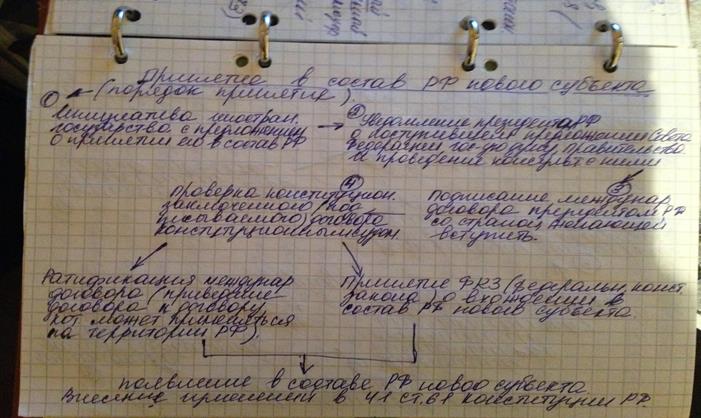 Принятие в состав РФ нового субъекта
(порядок принятия)
① Инициатива иностран.
государства с предложением
о принятии его в состав РФ
② Уведомление президентом РФ
о поступившем предложении Совета
Федерации гос-ю думу, правительства
и проведение консульт с ними
③ Подписание междунар
договора президентом РФ
со страной, желающей
вступить.
④ Проверка конституцион.
заключенного (под
писываемого) договора
конституционным судом.
Ратификация междунар
договора (приведение
договора к договору
кот может применяться
на территории РФ).
Принятие ФКЗ (федеральн. конст.
закона) о вхождении в
состав РФ нового субъекта.
появление в составе РФ нового субъекта
Внесение изменений в ч1 ст.61 Конституции РФ